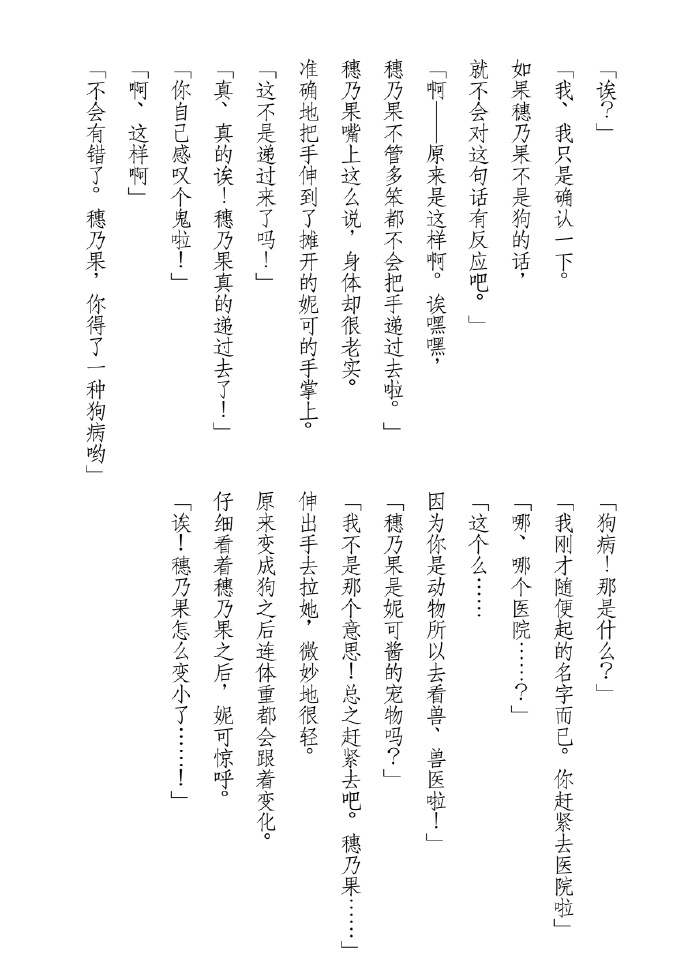 「诶？」
「我、我只是确认一下。
如果穗乃果不是狗的话，
就不会对这句话有反应吧。」
「啊——原来是这样啊。诶嘿嘿，
穗乃果不管多笨都不会把手递过去啦。」
穗乃果嘴上这么说，身体却很老实。
准确地把手伸到了摊开的妮可的手掌上。
「这不是递过来了吗！」
「真、真的诶！穗乃果真的递过去了！」
「你自己感叹个鬼啦！」
「啊、这样啊」
「不会有错了。穗乃果，你得了一种狗病哟」
「狗病！那是什么？」
「我刚才随便起的名字而已。你赶紧去医院啦」
「哪、哪个医院……？」
「这个么……
因为你是动物所以去看兽、兽医啦！」
「穗乃果是妮可酱的宠物吗？」
「我不是那个意思！总之赶紧去吧。穗乃果……」
伸出手去拉她，微妙地很轻。
原来变成狗之后连体重都会跟着变化。
仔细看着穗乃果之后，妮可惊呼。
「诶！穗乃果怎么变小了……！」